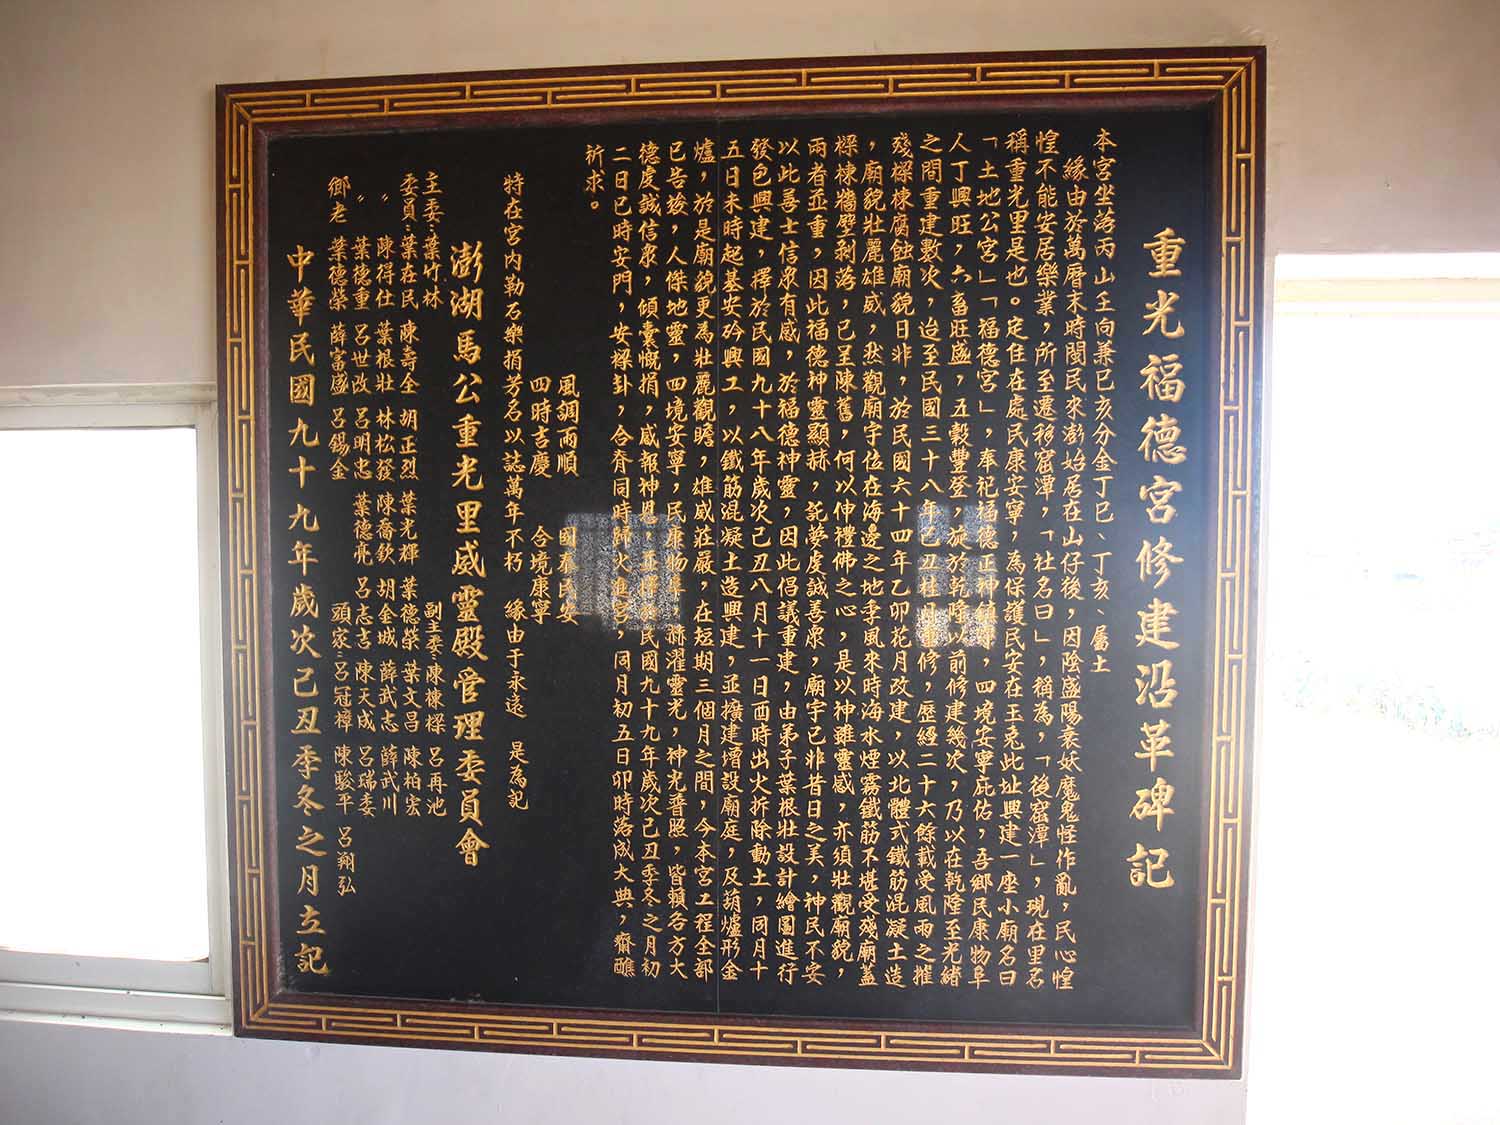 重光福德宮修建沿革碑記
本宮坐落丙山壬向兼巳亥分金丁巳、丁亥、屬土
緣由於萬曆末時閩民來澎始居在山仔後，因陰盛陽衰妖魔鬼怪作亂，民心惶
惶不能安居樂業，所至遷移窟潭，「社名曰」，稱為，「後窟潭」，現在里名
稱重光里是也。定住在處民康安寧，為保護民安在王克此址興建一座小廟名曰
「土地公宮」「福德宮」，奉祀福德正神鎮守，四境安寧庇佑，吾鄉民康物阜
人丁興旺，六畜旺盛，五穀豐登，旋於乾隆以前修建幾次，乃以在乾隆至光緒
之間重建數次，迨至民國三十八年己丑桂月重修，歷經二十六餘載受風雨之摧
殘樑棟腐蝕廟貌日非，於民國六十四年乙卯花月改建，以北體式鐵筋混凝土造
，廟貌壯麗雄威，然觀廟宇位在海邊之地季風來時海水煙霧鐵筋不堪受殘廟蓋
樑棟牆壁剝落，已呈陳舊，何以伸禮佛之心，是以神雖靈感，亦須壯觀廟貌，
兩者並重，因此福德神靈顯赫，託夢虔誠善眾，廟宇已非昔日之美，神民不安
以此善士信眾有感，於福德神靈，因此倡議重建，由弟子葉根壯設計繪圖進行
發包興建，擇於民國九十八年歲次己丑八月十一日酉時出火拆除動土，同月十
五日未時起基安砛興工，以鐵筋混凝土造興建，並擴建增設廟庭，及葫爐形金
爐，於是廟貌更為壯麗觀瞻，雄威莊嚴，在短期三個月之間，今本宮工程全部
已告竣，人傑地靈，四境安寧，民康物阜，赫濯靈光，神光普照，皆賴各方大
德虔誠信眾，傾囊慨捐，感報神恩，並擇於民國九十九年歲次己丑季冬之月初
二日巳時安門，安樑卦，合脊同時歸火進宮，同月初五日卯時落成大典，齋醮
祈求。
風調雨順 國泰民安
四時吉慶 合境康寧
特在宮內勒石樂捐芳名以誌萬年不朽 緣由于永遠 是為記
澎湖馬公重光里威靈殿管理委員會
主委：葉竹林 副主委：陳棟樑 呂再池
委員：葉在民 陳壽全 胡正烈 葉光輝 葉德榮 葉文昌 陳柏宏
〃 陳得仕 葉根壯 林松發 陳喬欽 胡金城 薛武志 薛武川
葉德重 呂世改 呂明忠 葉德亮 呂志吉 陳天成 呂瑞委
鄉老 葉德榮 薛富盛 呂錫金 頭家：呂冠樟 陳駿平 呂翔弘
中華民國九十九年歲次己丑季冬之月立記